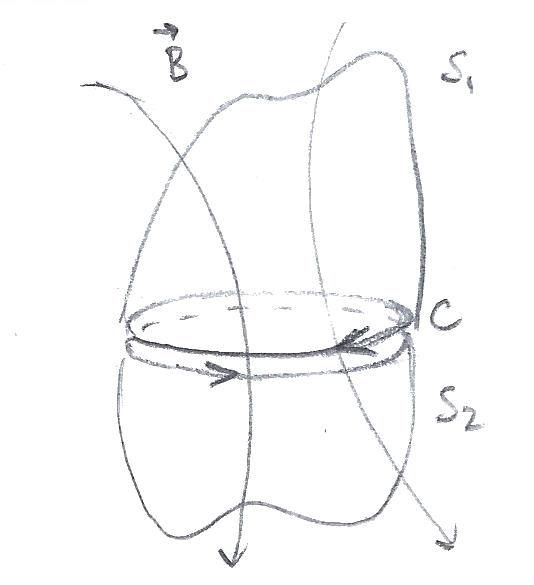 B⃗
S₁
C
S₂